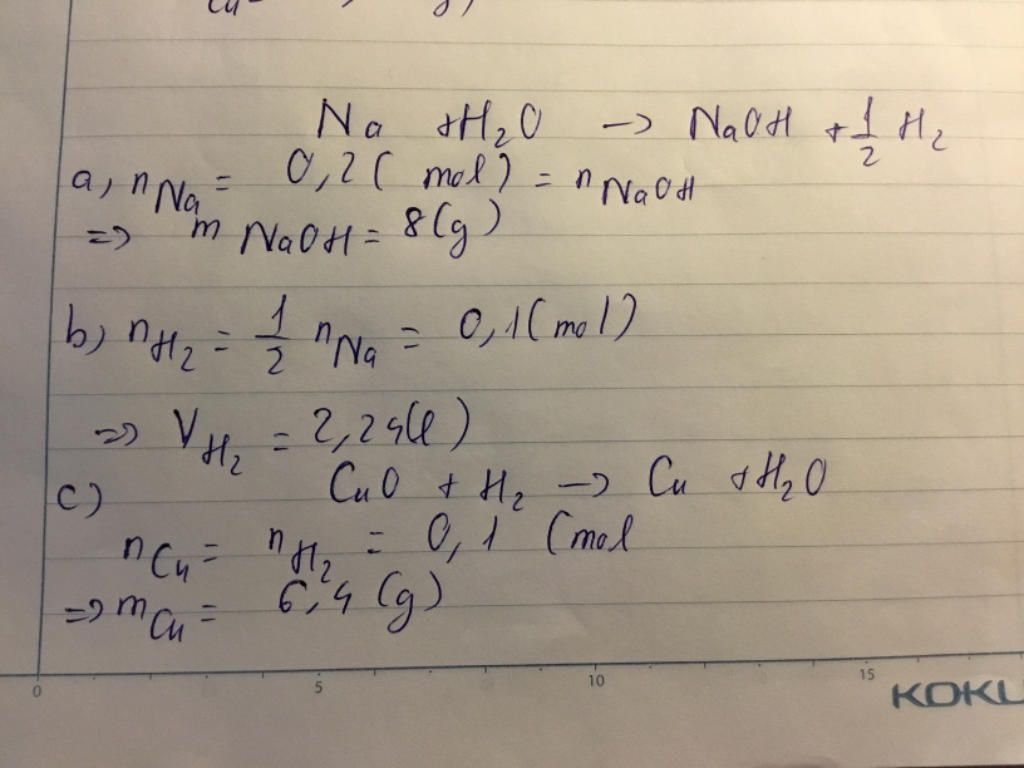 Na + H₂O → NaOH + 1/2 H₂
a, nNa = 0,2 ( mol ) = nNaOH
=> m NaOH = 8 (g)
b) nH₂ = 1/2 nNa = 0,1 (mol)
=> VH₂ = 2,24 (l)
c) CuO + H₂ → Cu + H₂O
nCu = nH₂ = 0,1 (mol
=> mCu = 6,4 (g)
0 5 10 15
KOKU